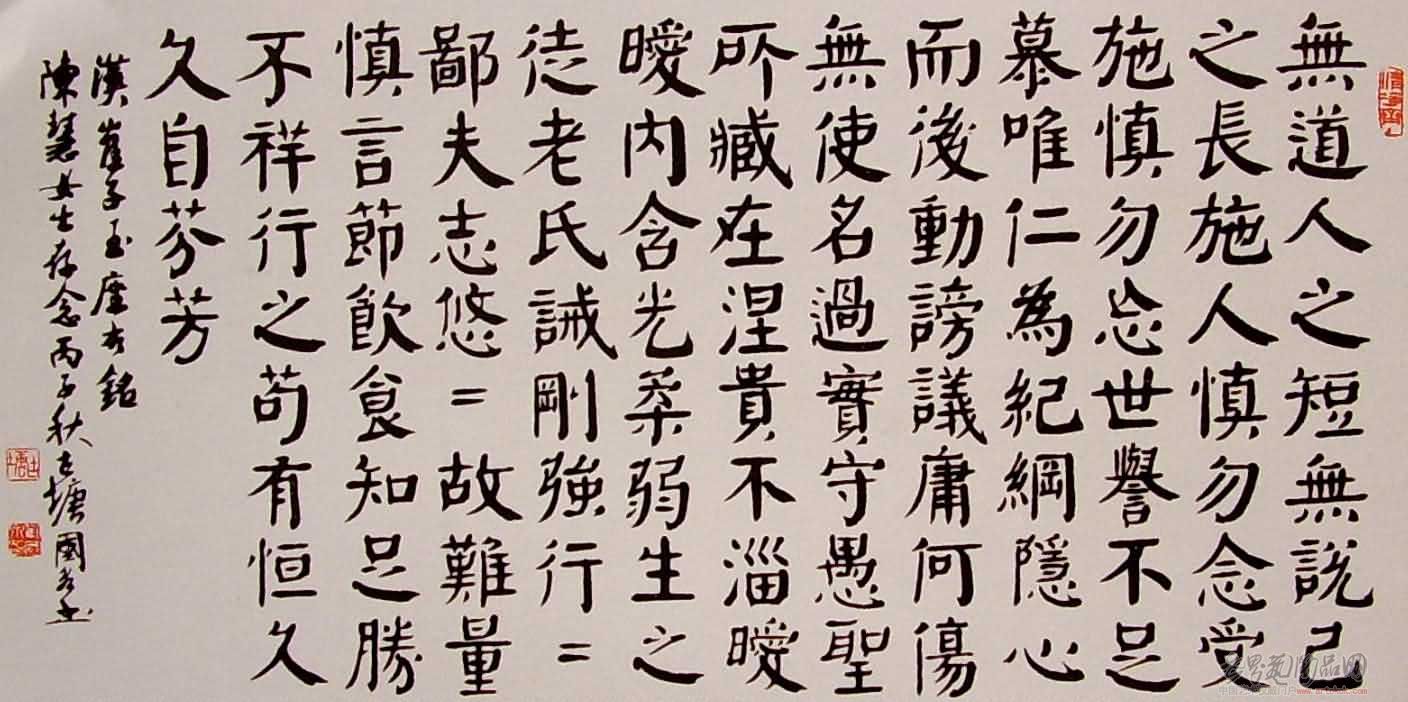 無道人之短無說己
之長施人慎勿念受
施慎勿忘世譽不足
慕唯仁為紀綱隱心
而後動謗議庸何傷
無使名過實守愚聖
所臧在涅貴不淄曖
曖內含光柔弱生之
徒老氏誡剛強行=
鄙夫志悠=故難量
慎言節飲食知足勝
不祥行之苟有恒久
久自芬芳
漢崔子玉座右銘
陳慧女生存念丙子秋古塘國